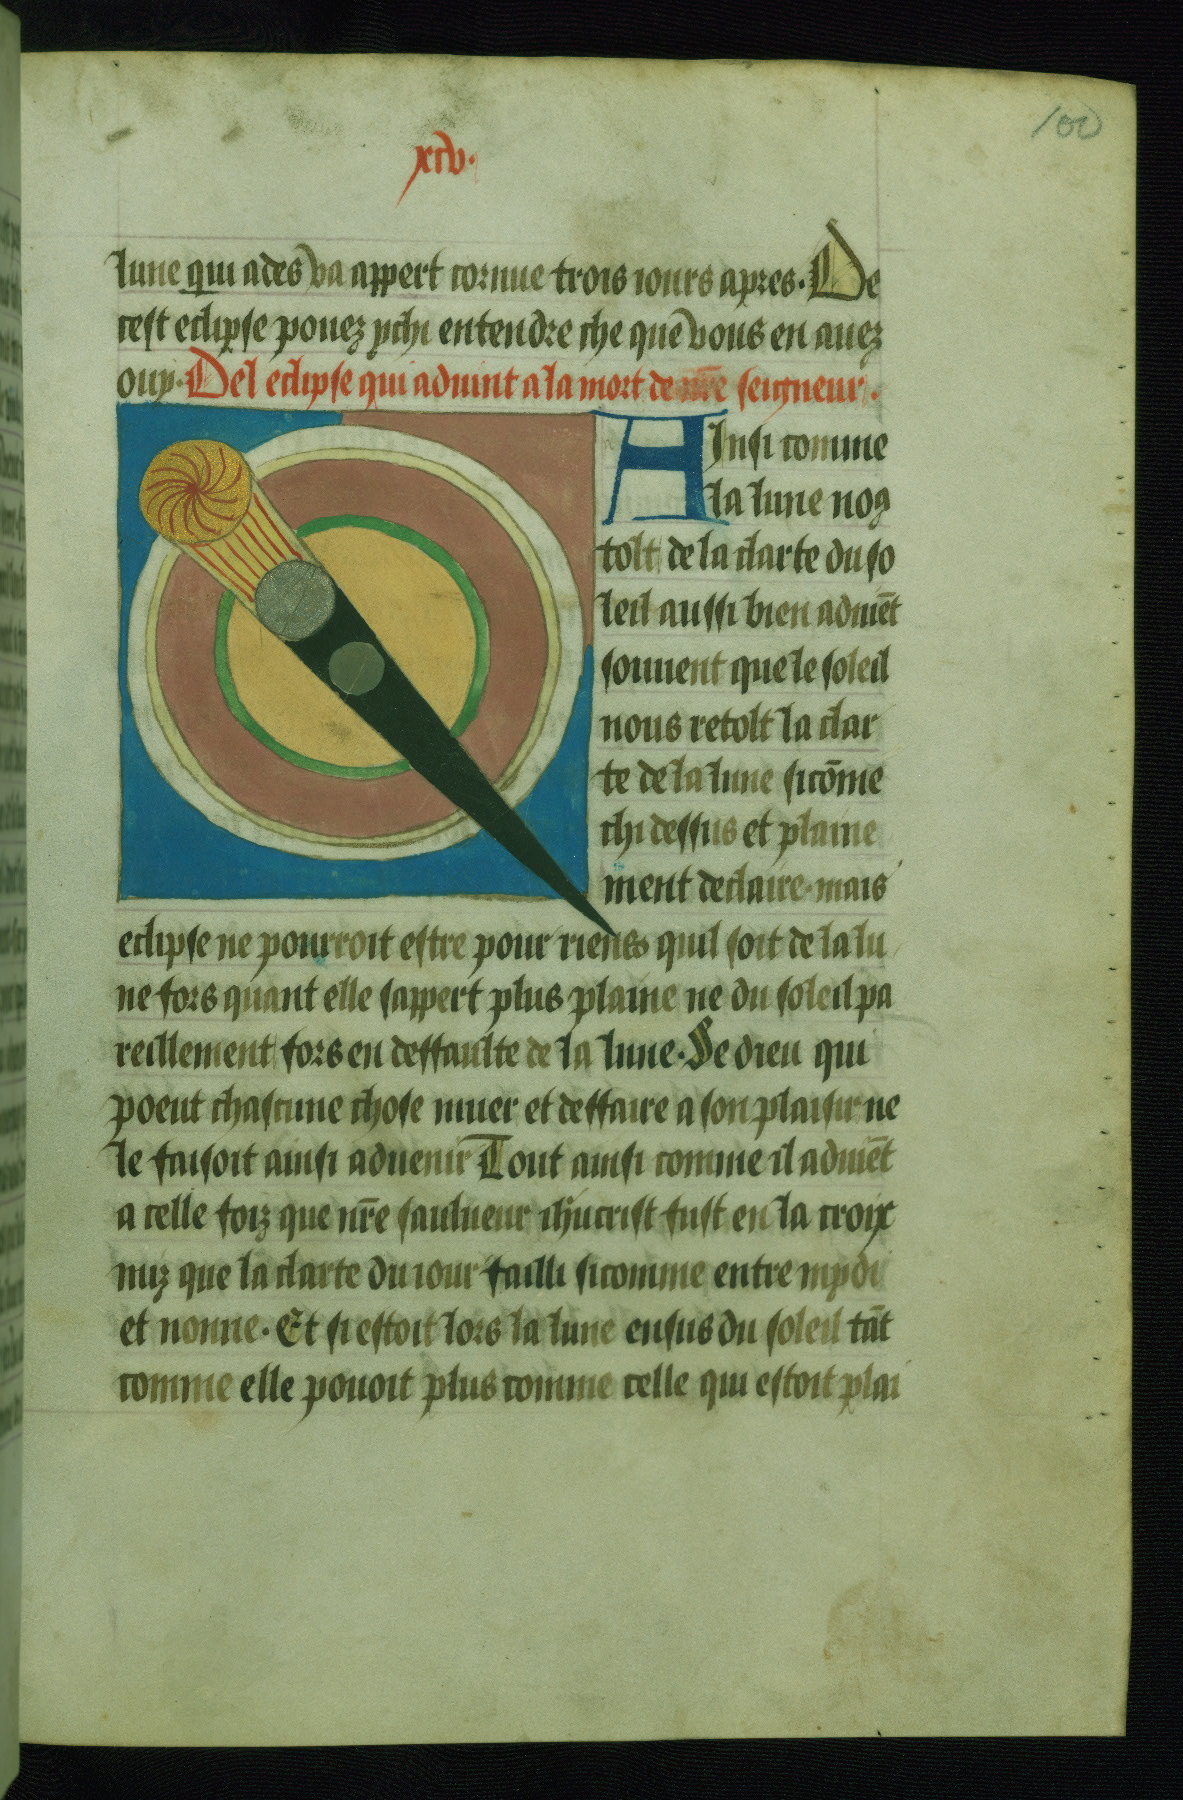 100
xcv.
lune qui ades va appert cornue trois iours apres. De
cest eclipse pouez ychi entendre che que vous en auez
ouy. Del eclipse qui aduint a la mort de nr̄e seigneur.
AInsi comme
la lune no9
tolt de la clarte du so
leil aussi bien aduiēt
souuent que le soleil
nous retolt la clar
te de la lune sicōme
chi dessus et plaine
ment declaire. mais
eclipse ne pourroit estre pour riens quil soit de la lu
ne fors quant elle sappert plus plaine ne du soleil pa
reillement fors en deffaulte de la lune. Se dieu qui
poeut chascune chose muer et deffaire a son plaisir ne
le faisoit ainsi aduenir Tout ainsi comme il aduiēt
a celle foiz que nr̄e saulueur ih̄ucrist fust en la croix
miz que la clarte du iour failli sicomme entre mydi
et nonne. Et si estoit lors la lune ensus du soleil tāt
comme elle pouoit plus comme celle qui estoit plai